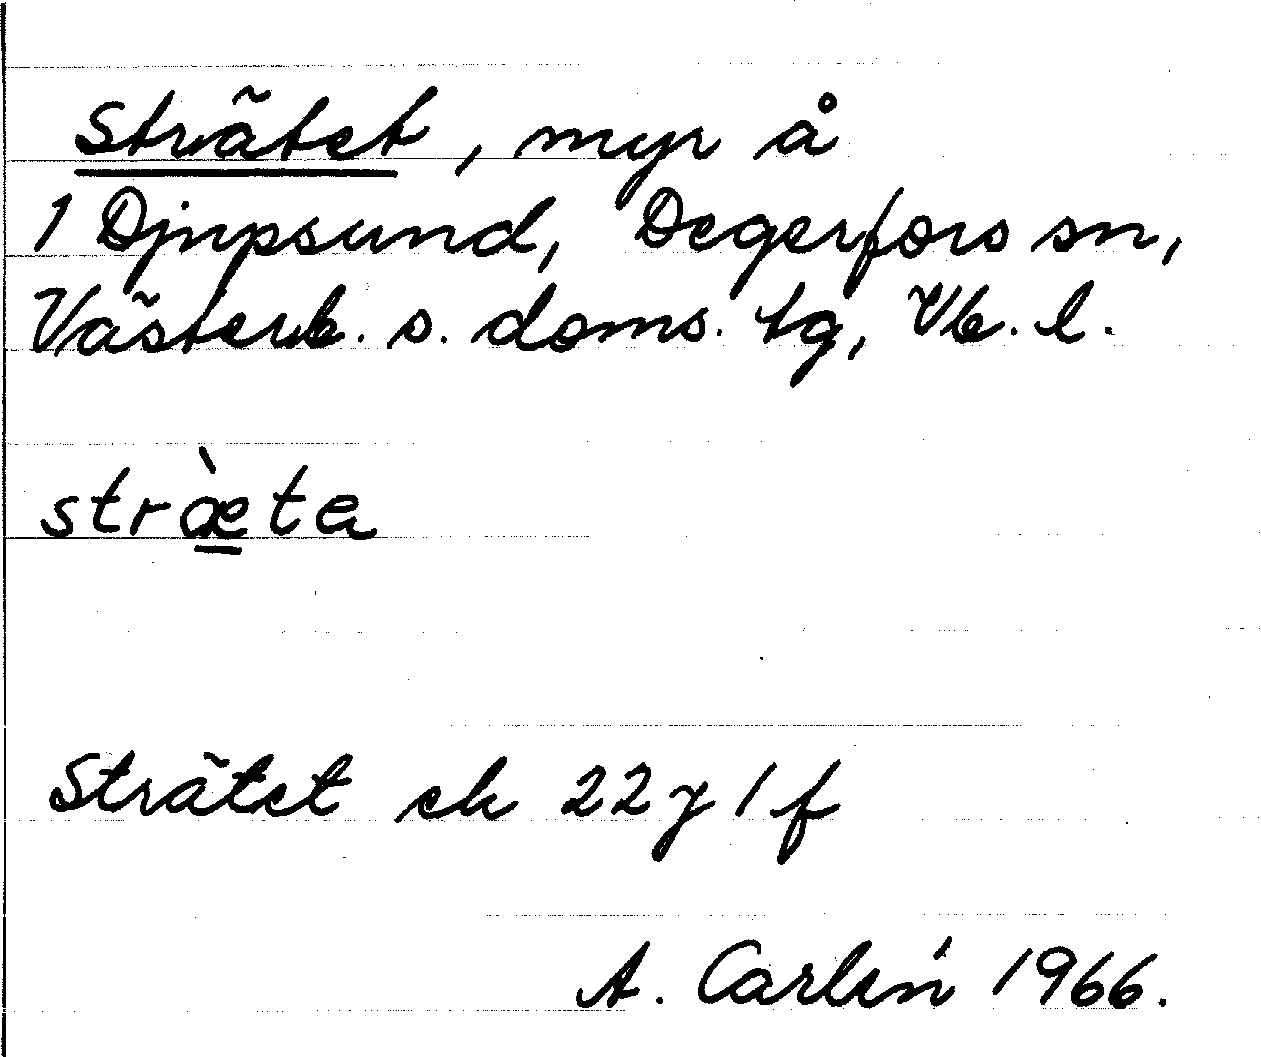 Strätet, myr å
1 Djupsund, Degerfors sn,
Västerb. s. doms. tg, Vb. l.
stræ̠̀ta
Strätet ek 22 y 1 f
A. Carlén 1966.